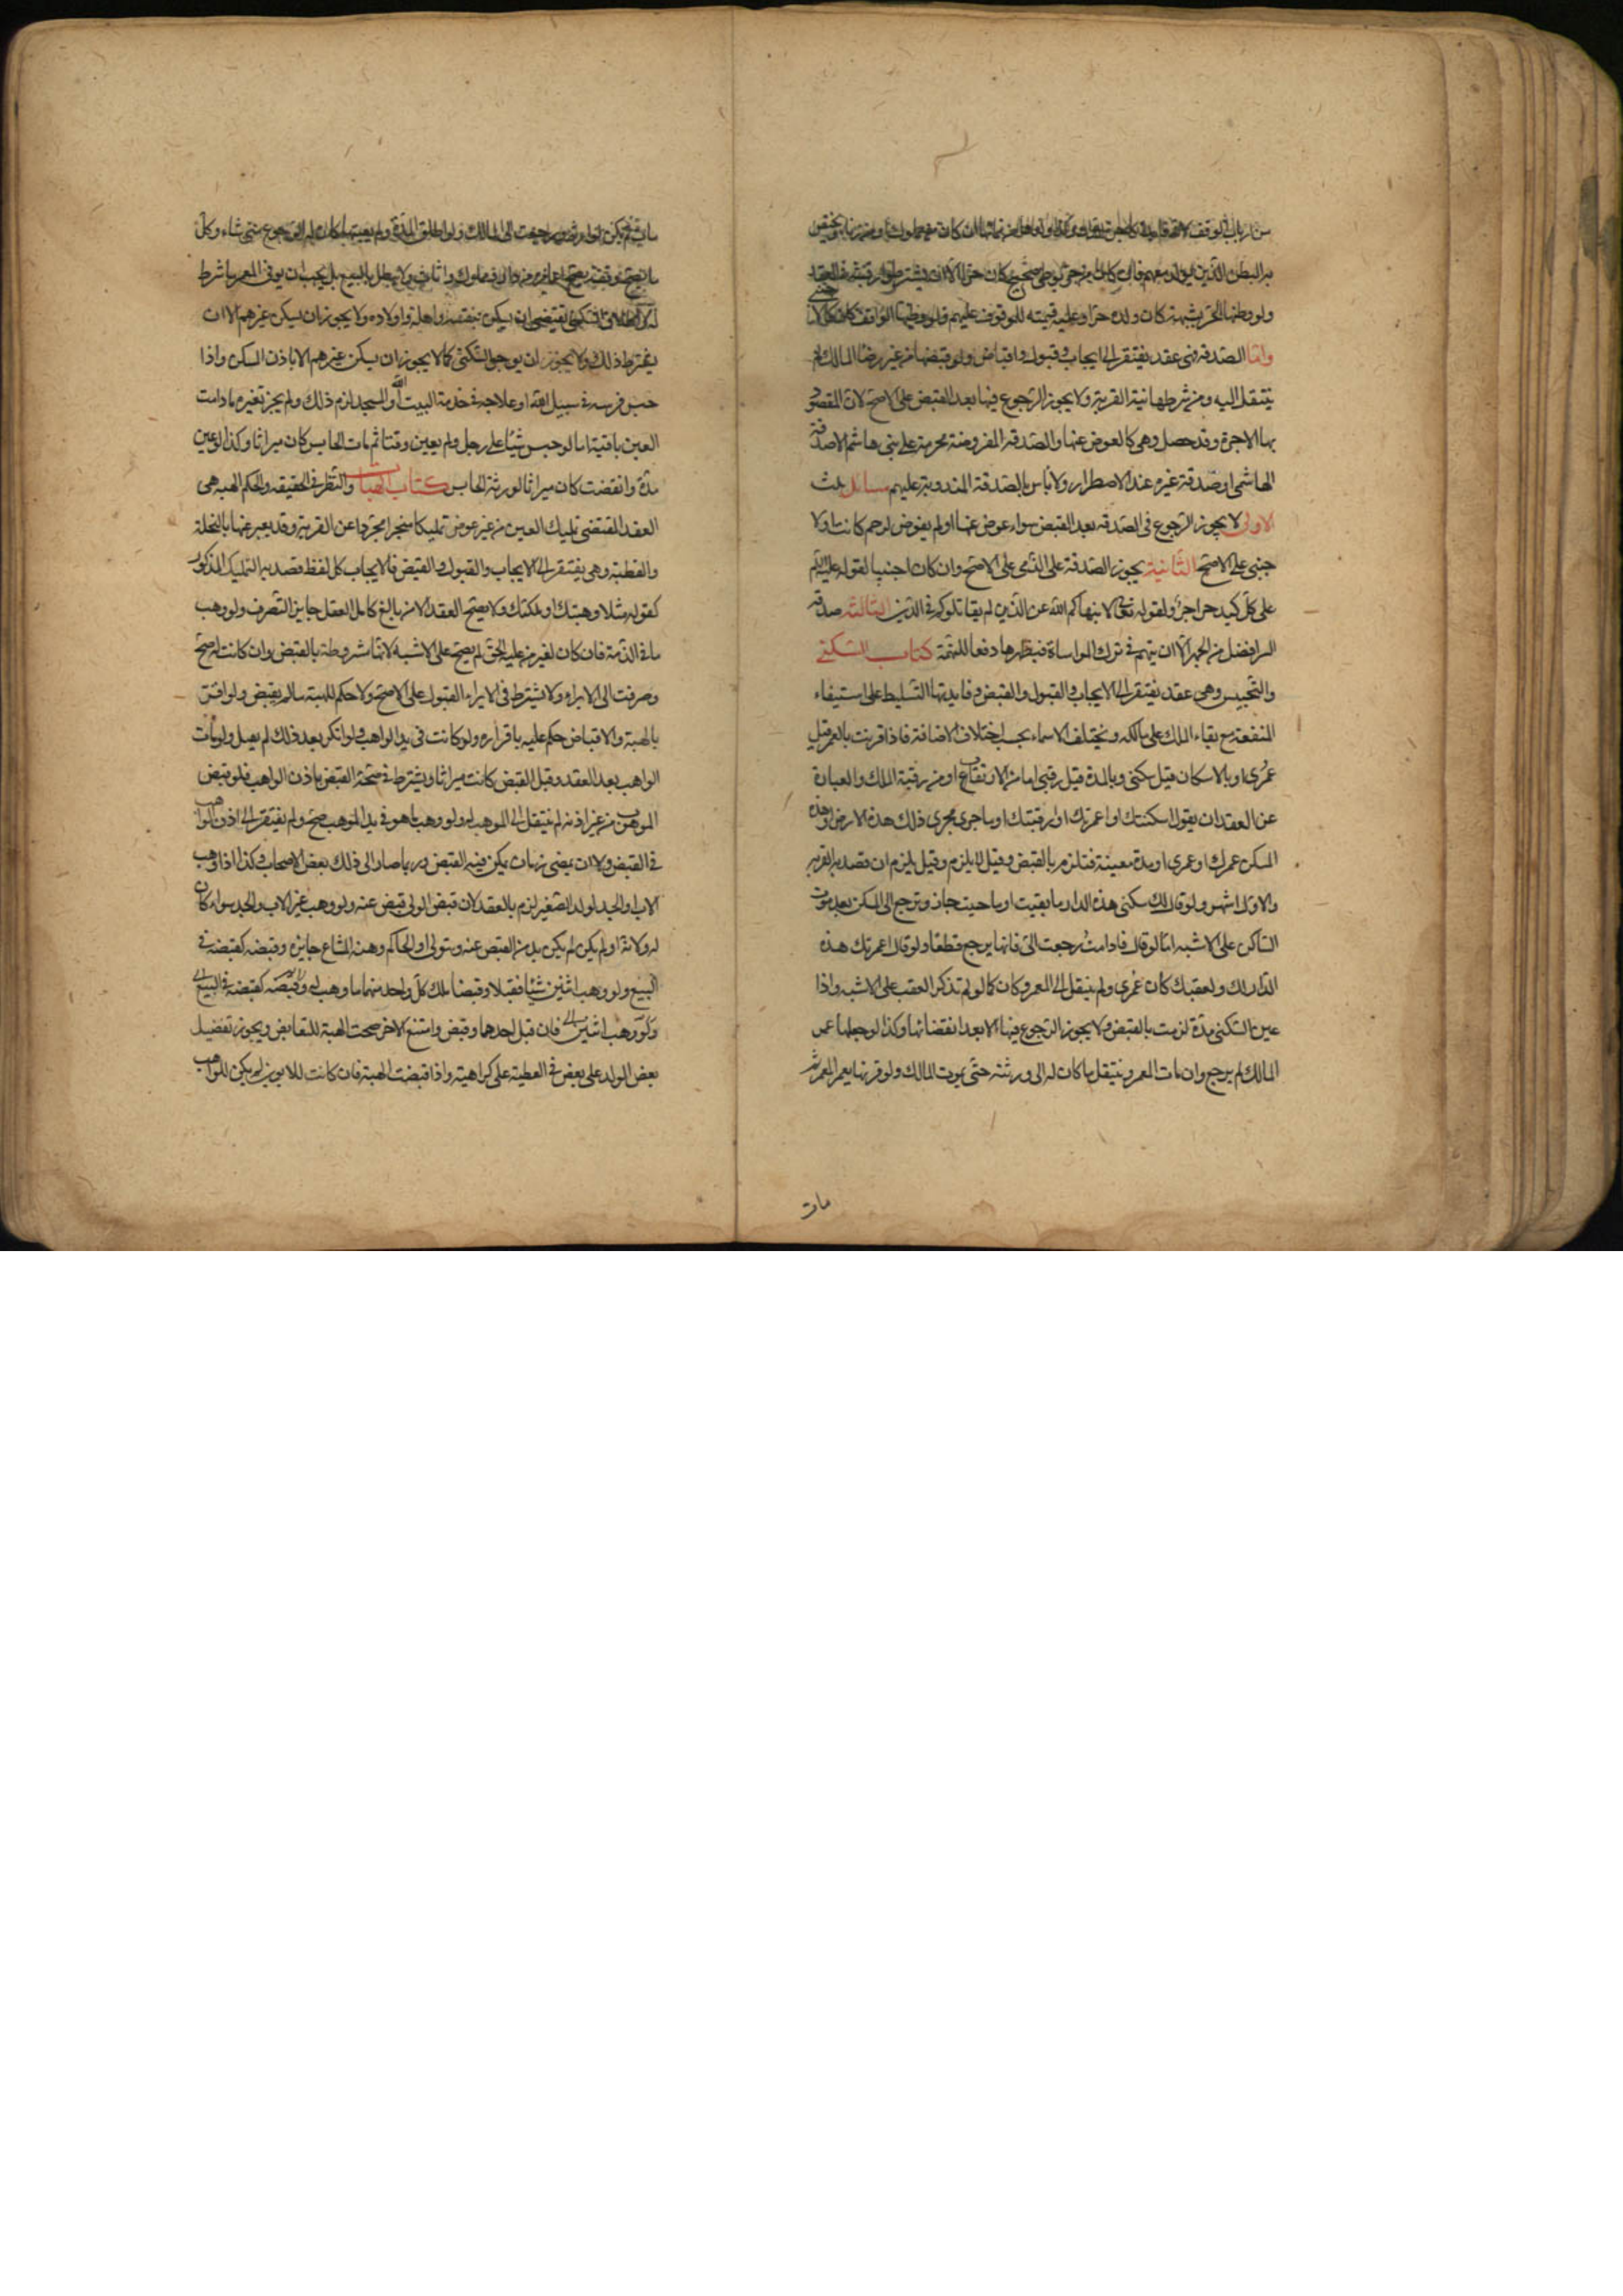 ولو وطئها الحر بشبهة كان ولده حرا وعليه قيمته للموقوف عليهم ولو وطئها الواقف كان كالا
جنبي
واما الصدقة فهي عقد يفتقر الى ايجاب وقبول واقباض ولو قبضها من غير رضا المالك لم
ينتقل اليه ومن شرطها نية القربة ولا يجوز الرجوع فيها بعد القبض على الاصح لان المقصود
بها الاجر وقد حصل وهي كالعوض عنها والصدقة المفروضة محرمة على بني هاشم الا صدقة
الهاشمي او صدقة غيره عند الاضطرار ولا باس بالصدقة المندوبة عليهم مسائل ثلث
الاولى لا يجوز الرجوع في الصدقة بعد القبض سواء عوض عنها او لم يعوض لرحم كانت او لا
جنبي على الاصح الثانية يجوز الصدقة على الذمي على الاصح وان كان اجنبيا لقوله عليه السلم
على كل كبد حرا اجر ولقوله تعالى لا ينهاكم الله عن الذين لم يقاتلوكم في الدين الثالثة صدقة
السر افضل من الجهر الا ان يتهم في ترك المواساة فيظهرها دفعا للتهمة كتاب السكنى
والتحبيس وهي عقد يفتقر الى الايجاب والقبول والقبض وفايدتها التسليط على استيفاء
المنفعة مع بقاء الملك على مالكه ويختلف الاسماء بحسب اختلاف الاضافة فاذا قرنت بالعمر قيل
عمرى او بالاسكان قيل سكنى وبالمدة قيل رقبى اما من الارتقاب او من رقبة الملك والعبارة
عن العقد ان يقول اسكنتك او اعمرتك او ارقبتك او ما جرى مجرى ذلك هذه الارض او هذه
المسكن عمرك او عمرى او مدة معينة فتلزم بالقبض وقيل لا يلزم وقيل يلزم ان قصد به القربة
والاول اشهر ولو قال لك سكنى هذه الدار ما بقيت او ما حييت جاز وترجع الى المسكن بعد موت
الساكن على الاشبه اما لو قال فاذا مت رجعت الي فانها يرجع قطعا ولو قال اعمرتك هذه
الدار لك ولعقبك كان عمرى ولم ينتقل الى المعمر وكان كما لو لم تذكر العقب على الاشبه واذا
عين السكنى مدة لزمت بالقبض ولا يجوز الرجوع فيها الا بعد انقضائها وكذا لو جعلها عمر
المالك لم يرجع وان مات المعمر وينتقل ما كان له الى ورثته حتى يموت المالك ولو قرنها بعمر المعمر ثم
مات
يشترط ذلك ولا يجوز ان يوجر السكنى كما لا يجوز ان يسكن غيرهم الا باذن المسكن واذا
حبس فرسه في سبيل الله او علامه في خدمة البيت او المسجد لزم ذلك ولم يجز تغيره ما دامت
العين باقية اما لو حبس شيئا على رجل ولم يعين وقتا ثم مات الحابس كان ميراثا وكذا لو عين
مدة وانقضت كان ميراثا لورثة الحابس كتاب الهبات والنظر في الحقيقه والحكم الهبه هي
العقد المقتضي تمليك العين من غير عوض تمليكا منجرا مجردا عن القربة وقد يعبر عنها بالنحلة
والعطية وهي يفتقر الى الايجاب والقبول والقبض فالايجاب كل لفظ قصد به التمليك المذكور
كقوله مثلا وهبتك او ملكتك ولا يصح العقد الا من بالغ كامل العقل جايز التصرف ولو وهب
ما في الذمة فان كان لغير من عليه الحق لم يصح على الاشبه لانها مشروطة بالقبض وان كانت له صح
وصرفت الى الابراء ولا يشترط في الابراء القبول على الاصح ولا حكم للهبة ما لم يقبض ولو اقر
بالهبة والاقباض حكم عليه باقراره ولو كانت في يد الواهب ولو انكر بعد ذلك لم يقبل ولو مات
الواهب بعد العقد وقبل القبض كانت ميراثا ويشترط في صحة القبض باذن الواهب فلو قبض
الموهوب من غير اذنه لم ينتقل الى الموهب له ولو وهب ما هو في يد الموهب صح ولم يفتقر الى اذن الواهب
في القبض ولا ان يمضي زمان يمكن فيه القبض وربما صار الى ذلك بعض الاصحاب وكذا اذا وهب
الاب او الجد لولد الصغير لزم بالعقد لان قبض الولي قبض عنه ولو وهب غير الاب والجد سواء كان
له ولاية او لم يكن لم يكن بد من القبض عنه ويتولى او الحاكم وهبة المشاع جايزه وقبضه كقبضه في
البيع ولو وهب اثنين شيئا فقبلا وقبضا ملك كل واحد منهما ما وهب له وقبضه كقبضه في البيع
ولو وهب اثنين فان قبل احدهما وقبض وامتنع الاخر صحت الهبة للقابض ويجوز تفضيل
بعض الولد على بعض في العطية على كراهية واذا قبضت الهبة فان كانت للابوين لم يكن للواهب